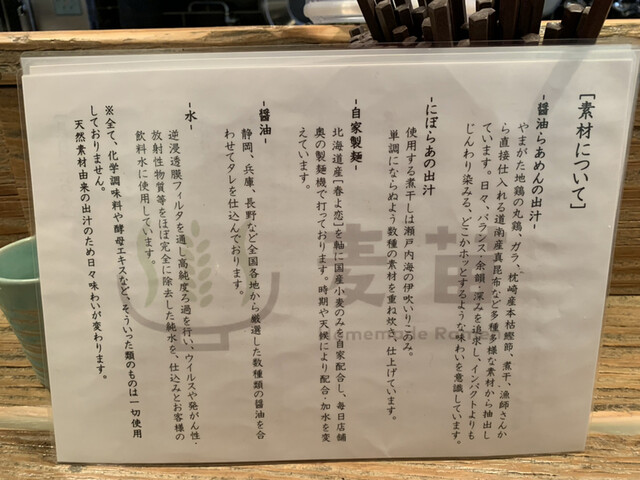 [素材について]
-醤油らあめんの出汁-
やまがた地鶏の丸鶏、ガラ、枕崎産本枯鰹節、煮干、漁師さんか
ら直接仕入れる道南産真昆布など多種多様な素材から抽出し
ています。日々、バランス・余韻・深みを追求し、インパクトよりも
じんわり染みる、どこかホッとするような味わいを意識しています。
-にぼらあの出汁-
使用する煮干しは瀬戸内海の伊吹いりこのみ。
単調にならぬよう数種の素材を重ね炊き、仕上げています。
-自家製麺-
北海道産「春よ恋」を軸に国産小麦のみを自家配合し、毎日店舗
奥の製麺機で打っております。時期や天候により配合・加水を変
えています。
-醤油-
静岡、兵庫、長野など全国各地から厳選した数種類の醤油を合
わせてタレを仕込んでおります。
-水-
逆浸透膜フィルタを通し高純度ろ過を行い、ウイルスや発がん性・
放射性物質等をほぼ完全に除去した純水を、仕込みとお客様の
飲料水に使用しています。
※全て、化学調味料や酵母エキスなど、そういった類のものは一切使用
しておりません。
天然素材由来の出汁のため日々味わいが変わります。
麦苗
Homemade Ra